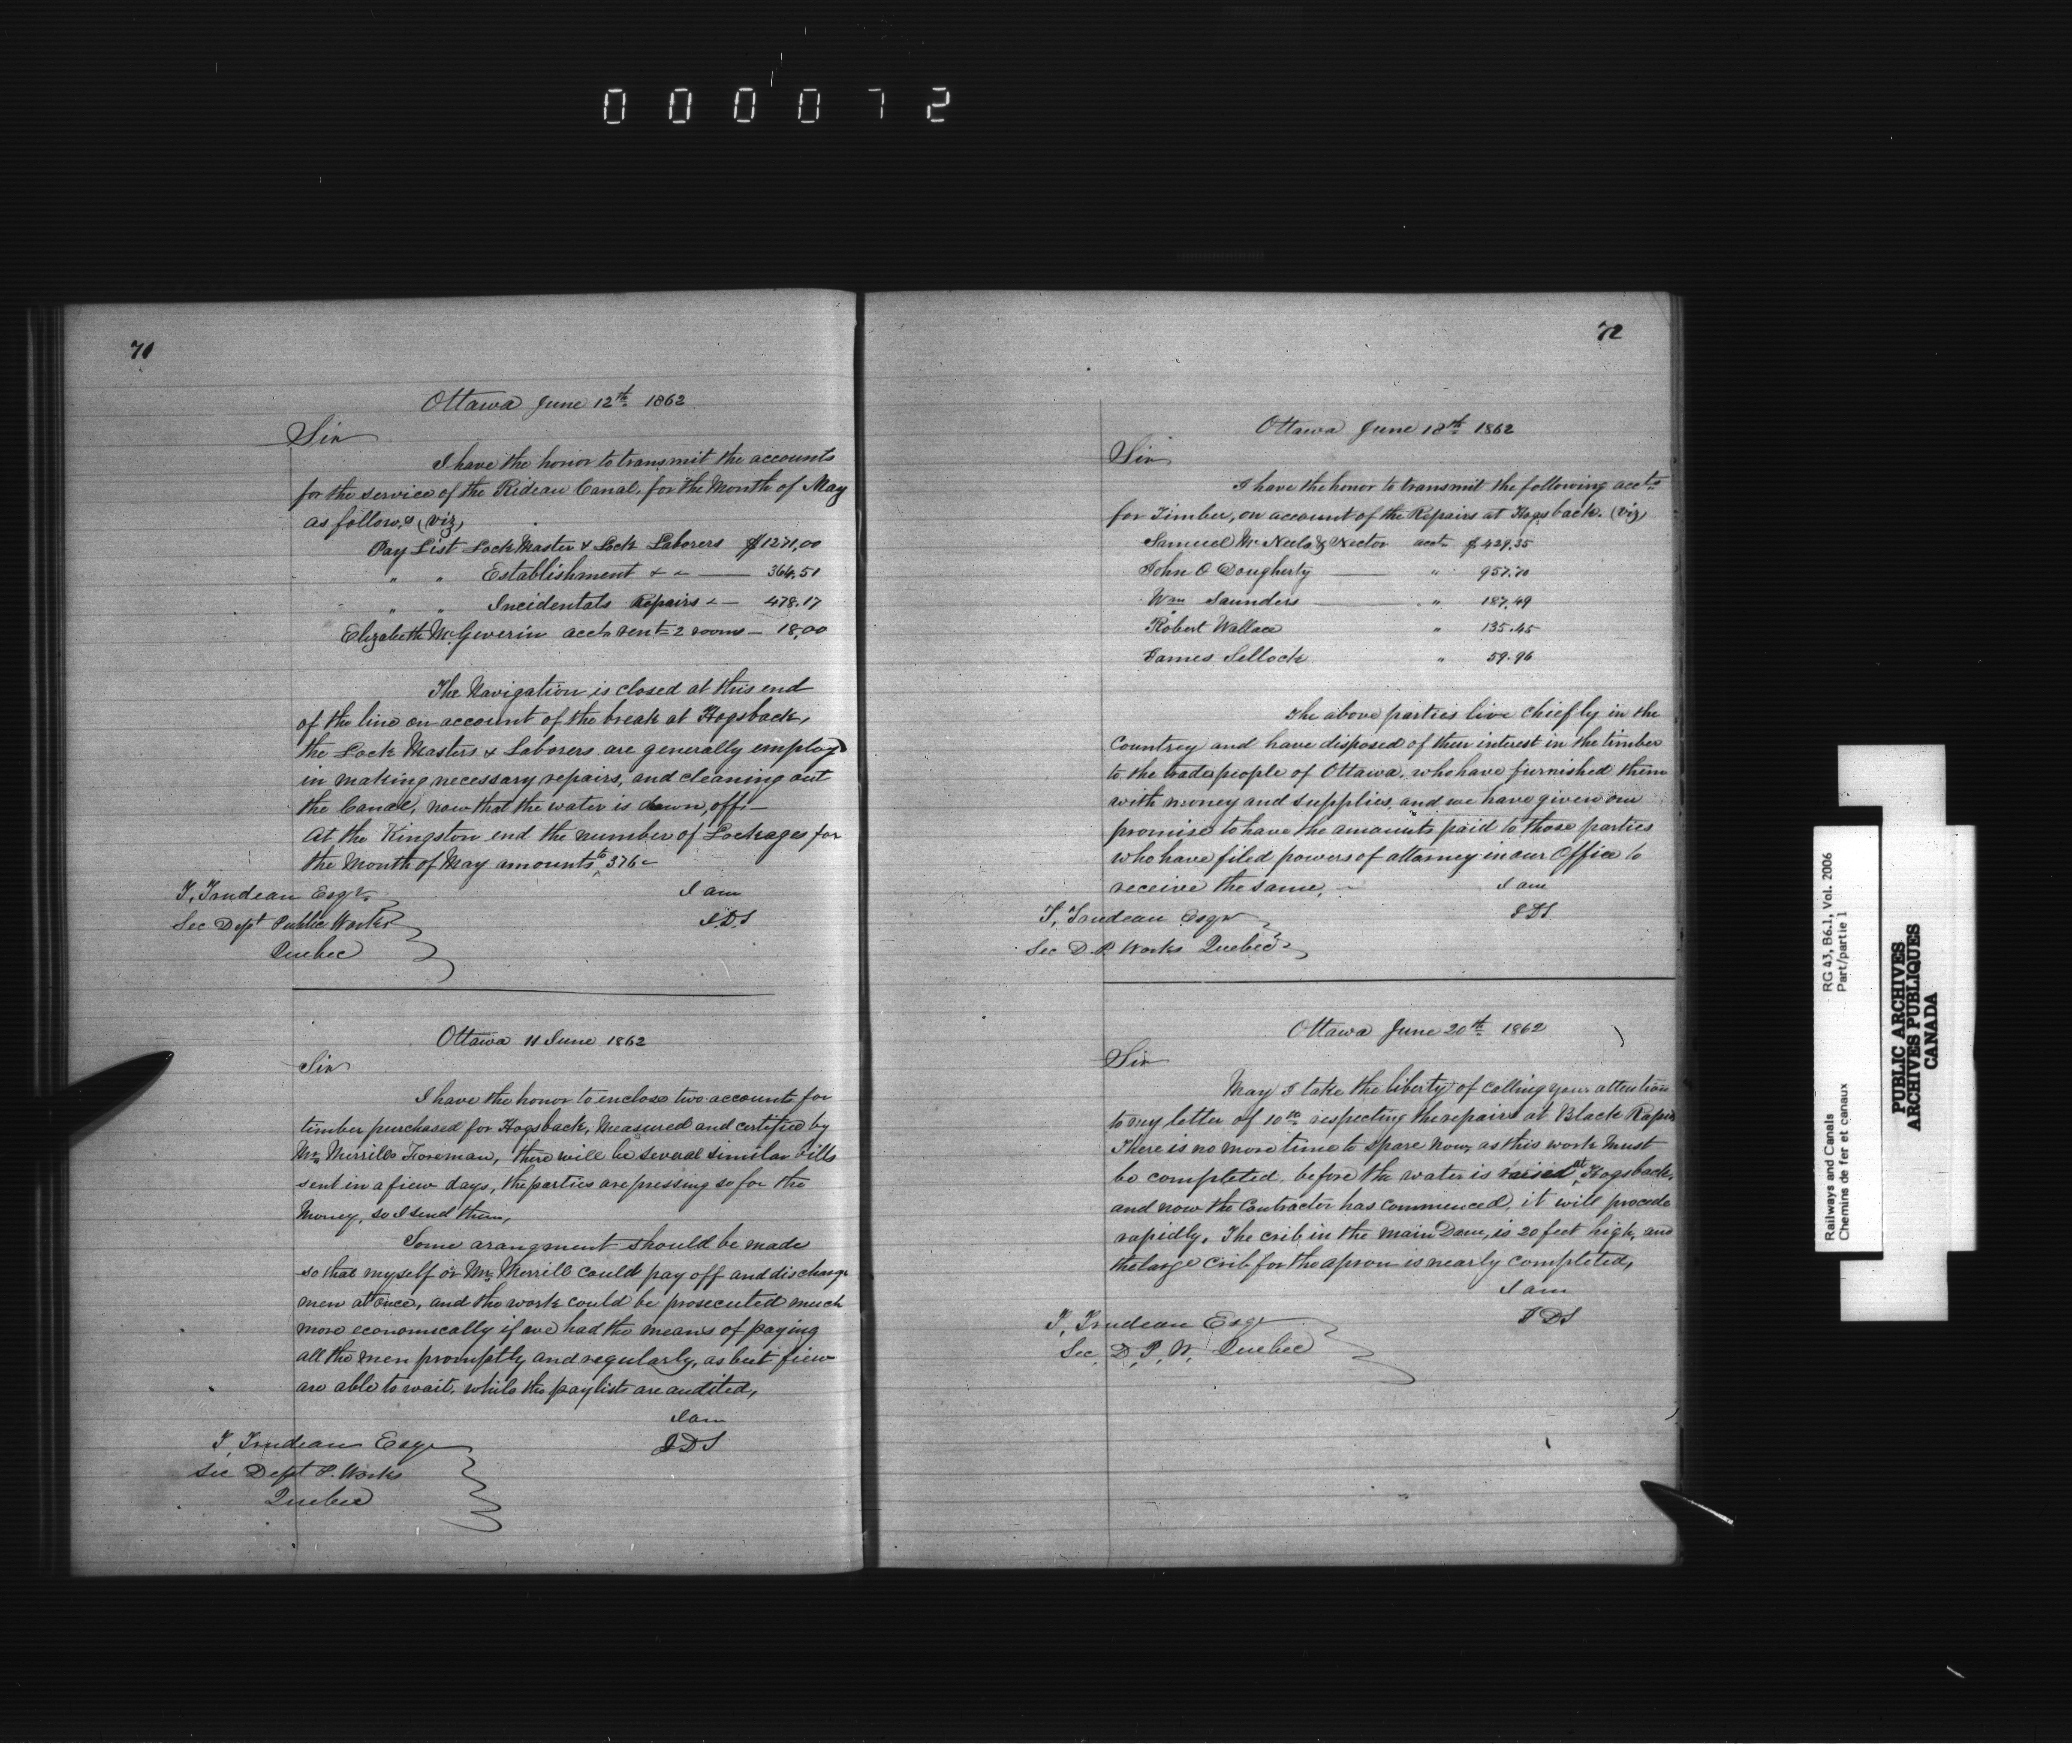 000072
71
Ottawa June 12th 1862
Sir
I have the honor to transmit the accounts
for the service of the Rideau Canal, for the Month of May
as follows, (viz)
Pay List Lock Master & Lock Laborers $1271,00
" " Establishment & " — 364,51
" " Incidentals Repairs " — 478.17
Elizabeth McGiverin acct rent 2 rooms — 18,00
The Navigation is closed at this end
of the line on account of the break at Hogsback,
the Lock Masters & Laborers are generally employ
in making necessary repairs, and cleaning out
the Canal, now that the water is drawn, off.—
At the Kingston end the number of Lockages for
the Month of May amounts to 376 -
I am
T, Trudeau Esqr
Sec Dept Public Works
J.D.S
Quebec
Ottawa 11 June 1862
Sir
I have the honor to enclose two accounts for
timber purchased for Hogsback, Measured and certified by
Mr Merrills Foreman, there will be several similar bills
sent in a fiew days, the parties are pressing so for the
Money, so I send them,
Some arangment should be made
so that myself or Mr Merrill could pay off and discharge
men at once, and the work could be prosecuted much
more economically if we had the means of paying
all the men promptly and regularly, as but fiew
are able to wait, while the paylists are audited,
I am
T, Trudeau Esqr
JDS
Sec Dept P. Works
Quebec
72
Ottawa June 18th 1862
Sir
I have the honor to transmit the following accts
for Timber, on account of the Repairs at Hogsback. (viz)
Samuel & acct $429.35
John O Dougherty — " 957.70
Wm Saunders — " 187.49
Robert Wallace " 135.45
James " 59.96
The above parties live chiefly in the
Countrey and have disposed of their interest in the timber
to the trades people of Ottawa, who have furnished them
with money and supplies, and we have given our
promise to have the amounts paid to those parties
who have filed powers of attorney in our Office to
receive the same, -
I am
T, Trudeau Esqr
JDS
Sec D.P. Works Quebec
Ottawa June 20th 1862
Sir
May I take the liberty of calling your attention
to my letter of 10th respecting the repairs at Black Rapids
There is no more time to spare now, as this work must
be completed, before the water is raised at Hogsback,
and now the Contractor has commenced, it will procede
rapidly. The crib in the main Dam, is 20 feet high, and
the large crib for the apron is nearly completed,
I am
T, Trudeau Esqr
JDS
Sec, D, P, W, Quebec
Railways and Canals
Chemins de fer et canaux
RG 43, B6.1, Vol. 2006
Part/partie 1
PUBLIC ARCHIVES
ARCHIVES PUBLIQUES
CANADA